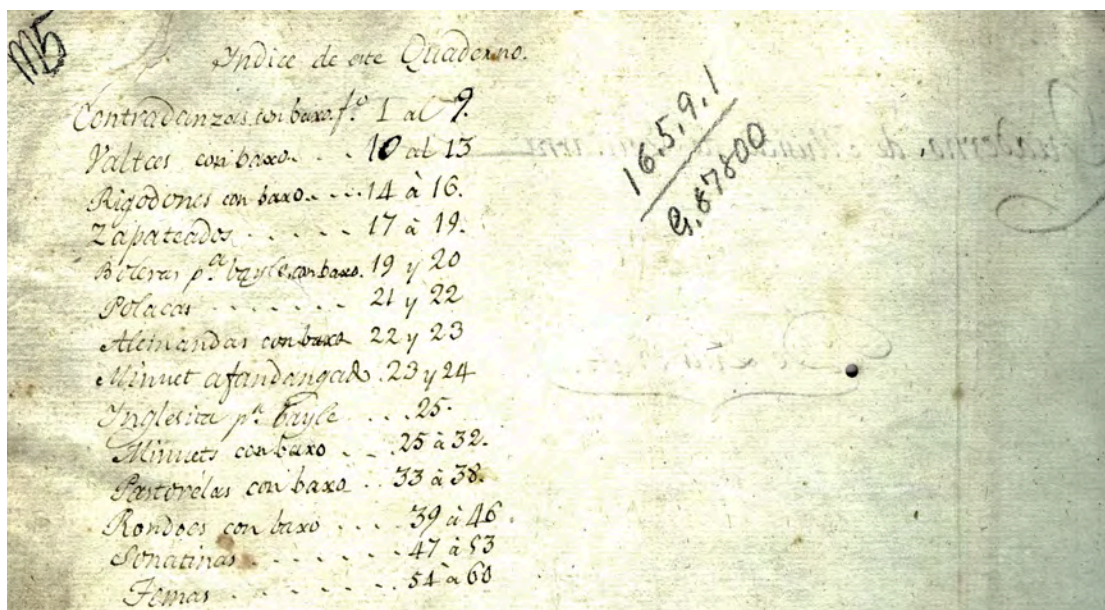 M5
Yndice de este Quaderno.
16.5.9.1
G.87800
Contradanzas con baxo. f.º 1 al 9.
Valtces con baxo. . . 10 al 13
Rigodones con baxo. . . . 14 à 16.
Zapateados . . . . . 17 à 19.
Boleras p.ª bayle con baxo. 19 y 20
Polacas . . . . . . . 21 y 22
Alemandas con baxo 22 y 23
Minuet afandangado . 23 y 24
Ynglesita p.ª bayle . . . 25.
Minuets con baxo . . . 25 à 32.
Pastorélas con baxo . . 33 à 38.
Rondoes con baxo . . . . 39 à 46.
Sonatinas . . . . . . 47 à 53
Temas . . . . . . . 54 à 60